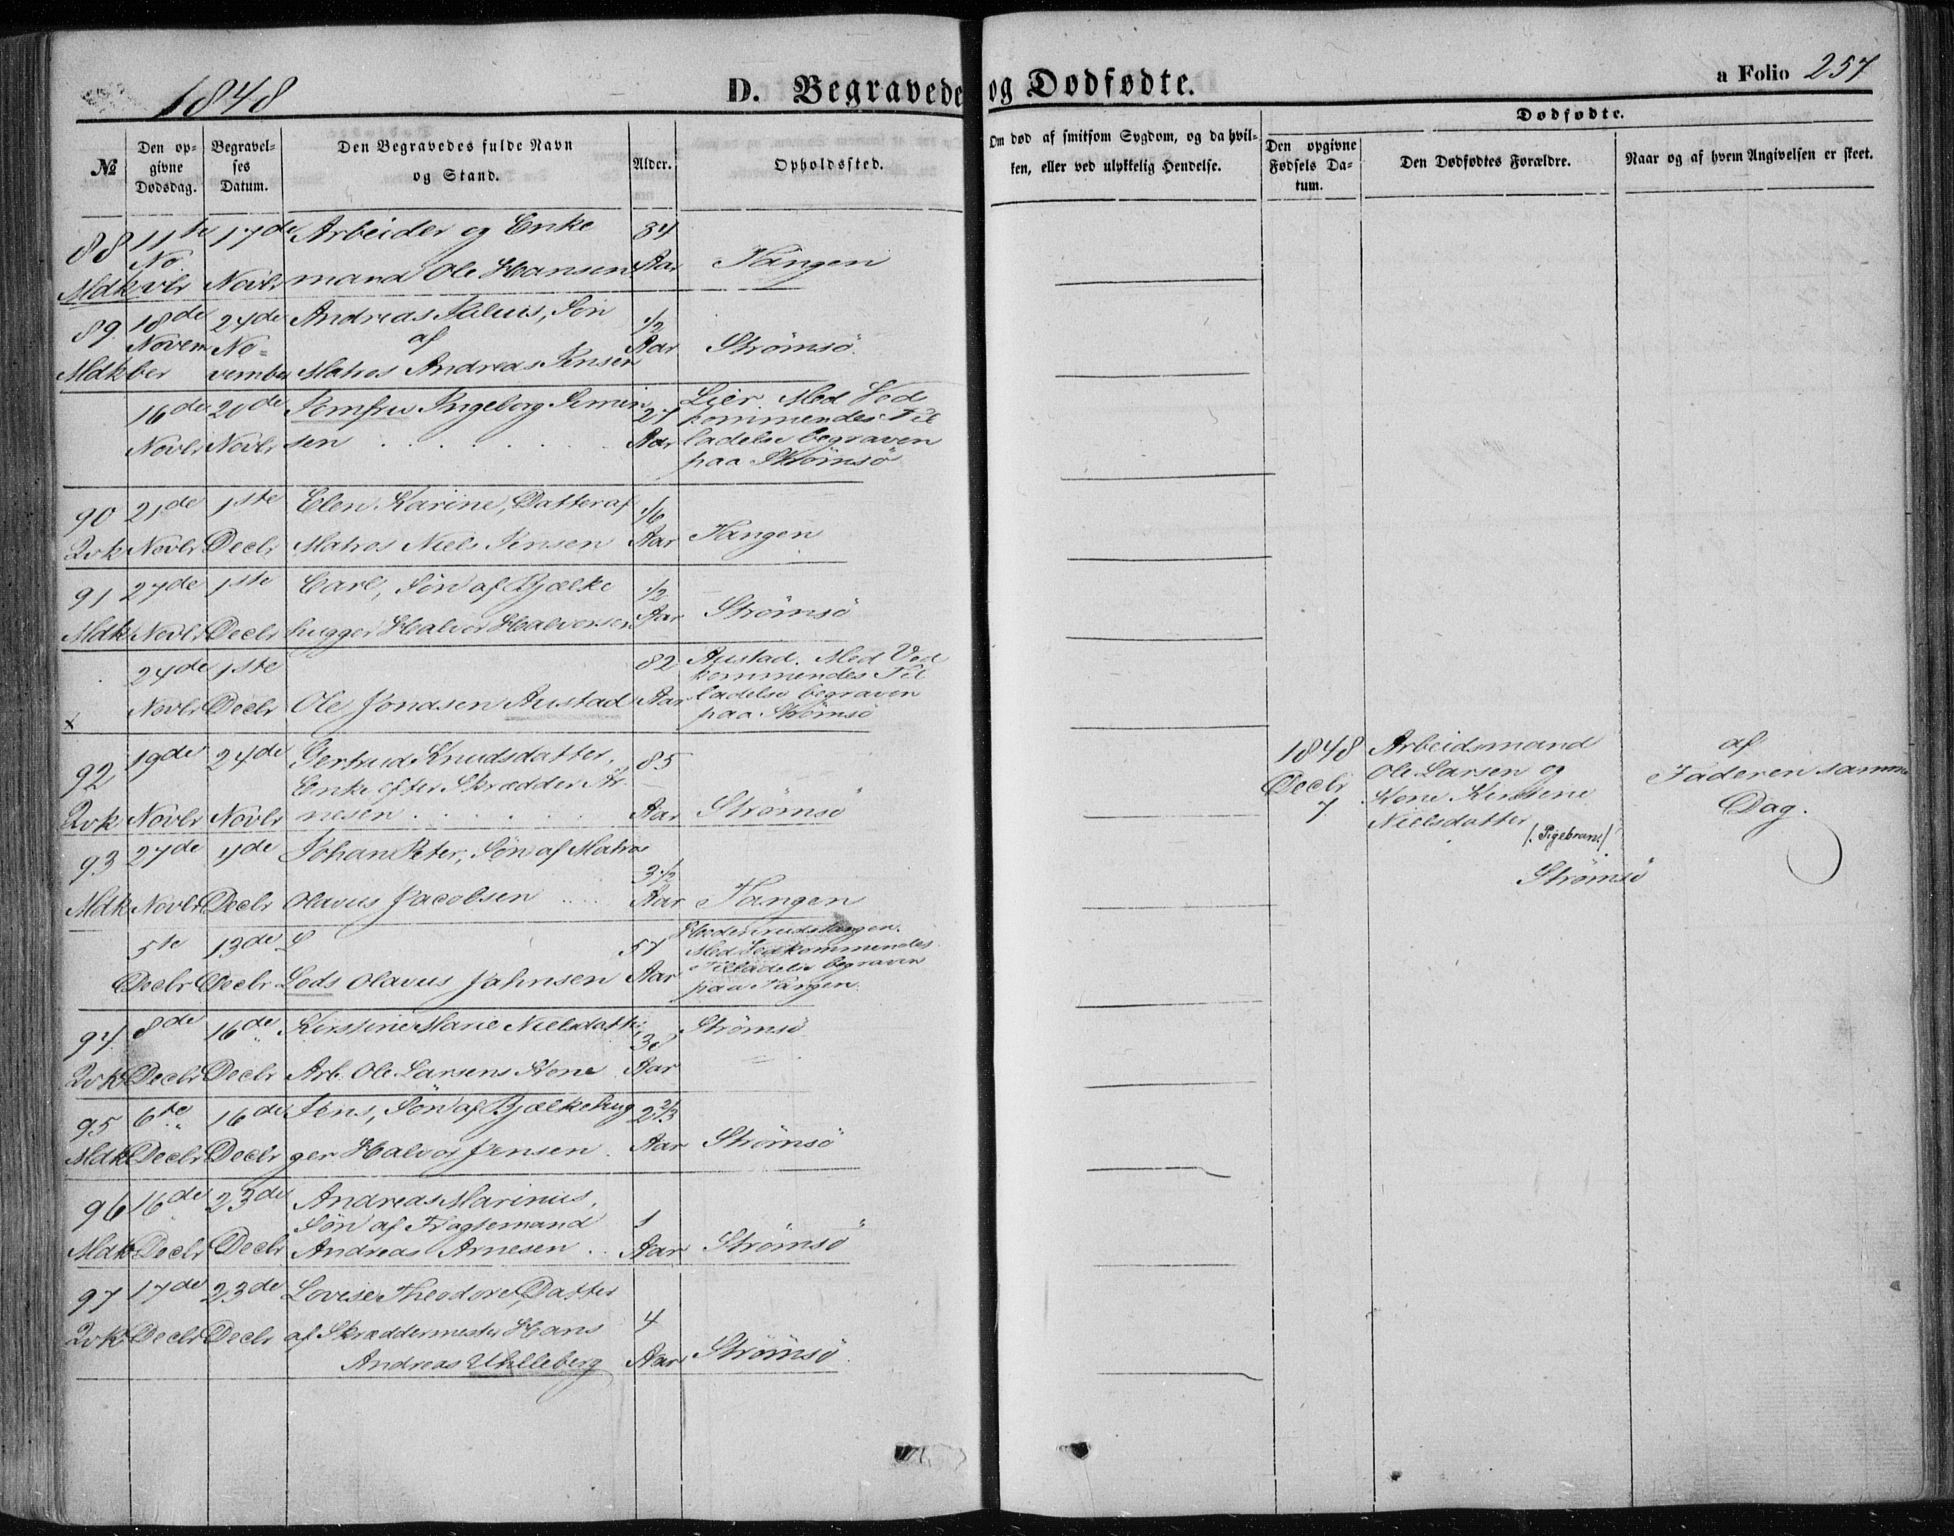 1848
D. Begravede og Dødfødte.
a Folio 257
No
Den opgivne Dødsdag.
Begravelses Datum.
Den Begravedes fulde Navn og Stand.
Alder.
Opholdssted.
Om død af smitsom Sygdom, og da hvilken, eller ved ulykkelig Hendelse.
Dødfødte.
Den opgivne Fødsels Datum.
Den Dødfødtes Forældre.
Naar og af hvem Angivelsen er skeet.
88 11te 17de Arbeider og Enke 34
No
Mdk vbr Novbr mand Ole Hansen Aar Tangen
89 18de 24de Andreas Julius, Søn 1/2
Novem No= af Aar Strømsö
Mdk ber vember Matros Andreas Jensen
16de 20de Jomfru Ingeborg Simen 27 Lier. Med Ved
kommendes Til
Novbr Novbr sen Aar ladelse begraven
paa Strømsö
90 21de 1ste Elen Karine, Datter af 1/6
Qvk Novbr Decbr Matros Niels Jensen Aar Tangen
91 27de 1ste Carl, Søn af Bjælke 1/2
Mdk Novbr Decbr hugger Halvor Halvorsen Aar Strømsö
24de 1ste 82 Austad. Med Ved
kommendes Til
Novbr Decbr Ole Jonasen Austad Aar ladelse begraven
x paa Strømsö
92 19de 24de Gertrud Knudsdatter, 85
Enke efter Skrædder Ar
Qvk Novbr Novbr nesen Aar Strømsö
1848 Arbeidsmand af
Decbr Ole Larsen og Faderen samme
7 Kone Kirstine Dag.
Nielsdatter
/: Pigebarn :/
Strømsö
93 27de 4de Johan Peter, Søn af Matros 3 1/2
Mdk Novbr Decbr Olavus Jacobsen Aar Tangen
5te 13de 57
Med Vedkommendes
Tilladelse begraven
Decbr Decbr Lods Olavus Jahnsen Aar paa Tangen.
94 8de 16de Kirstine Marie Nielsdatter 38 Strømsö
Qvk Decbr Decbr Arb. Ole Larsens Kone Aar
95 6te 16de Jens, Søn af Bjælkehug 2 2/3
Mdk Decbr Decbr ger Halvor Jensen Aar Strømsö
96 16de 23de Andreas Marinus,
Søn af Fragtemand 1
Mdk Decbr Decbr Andreas Arnesen Aar Strømsö
97 17de 23de Lovise Theodore, Datter
Qvk Decbr Decbr af Skræddermester Hans 4
Andreas Uhlleberg Aar Strømsö